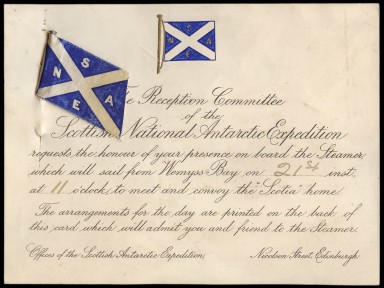 S
N A
E
The Reception Committee
of the
Scottish National Antarctic Expedition
requests the honour of your presence on board the Steamer
which will sail from Wemyss Bay on 21st inst.
at 11 o'clock to meet and convoy the "Scotia" home.
The arrangements for the day are printed on the back of
this card which will admit you and friend to the Steamer.
Offices of the Scottish Antarctic Expedition, Nicolson Street, Edinburgh.